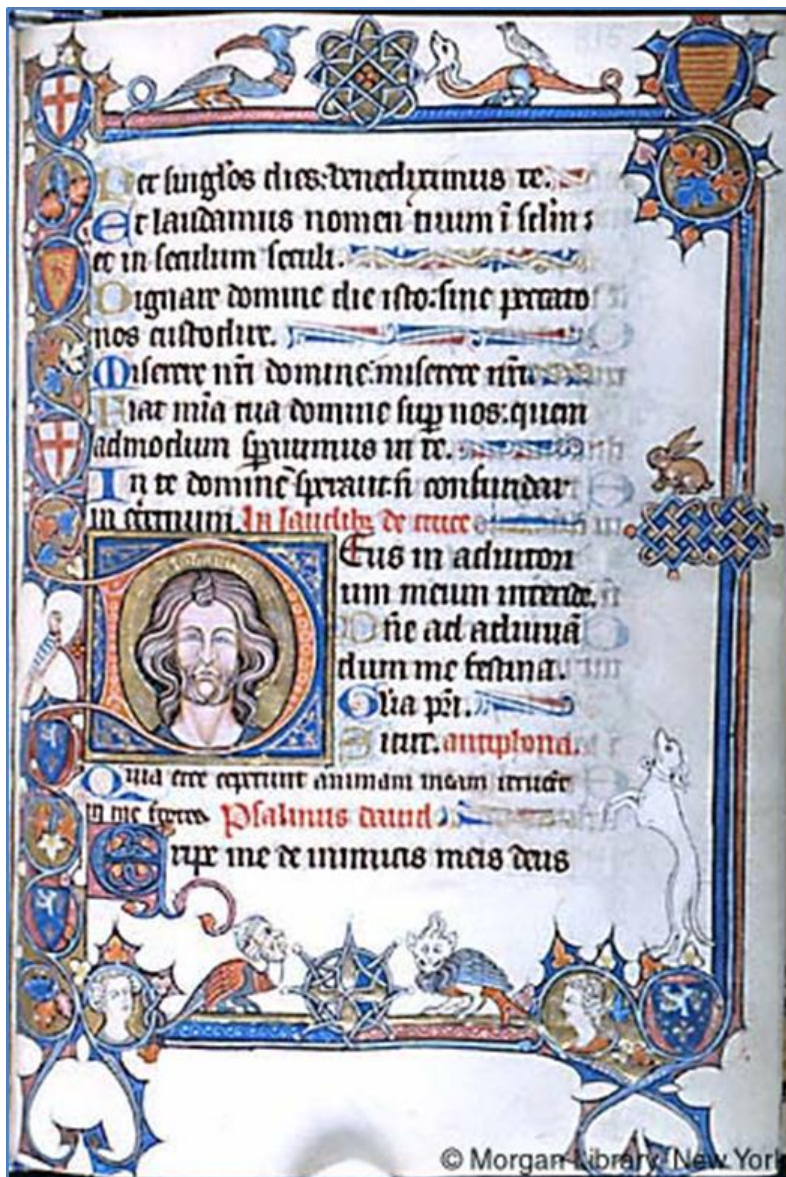 Per singlos dies: benedicimus te.
Et laudamus nomen tuum ī sclm
et in seculum seculi.
Dignare domine die isto: sine peccato
nos custodire.
Miserere nr̄i domine: miserere nr̄i
Fiat mīa tua domine sup nos: quem
admodum spauimus in te.
In te domine spaui: nō confundar
in eternum. In laudibȝ de cruce
Deus in adiutori
um meum intende.
Dn̄e ad adiuuā
dum me festina.
Glīa pr̄i.
Sicut. antiphona.
Quia ecce ceperunt animam meam irruerūt
in me fortes. Psalmus dauid
Eripe me de inimicis meis deus
© Morgan Library, New York